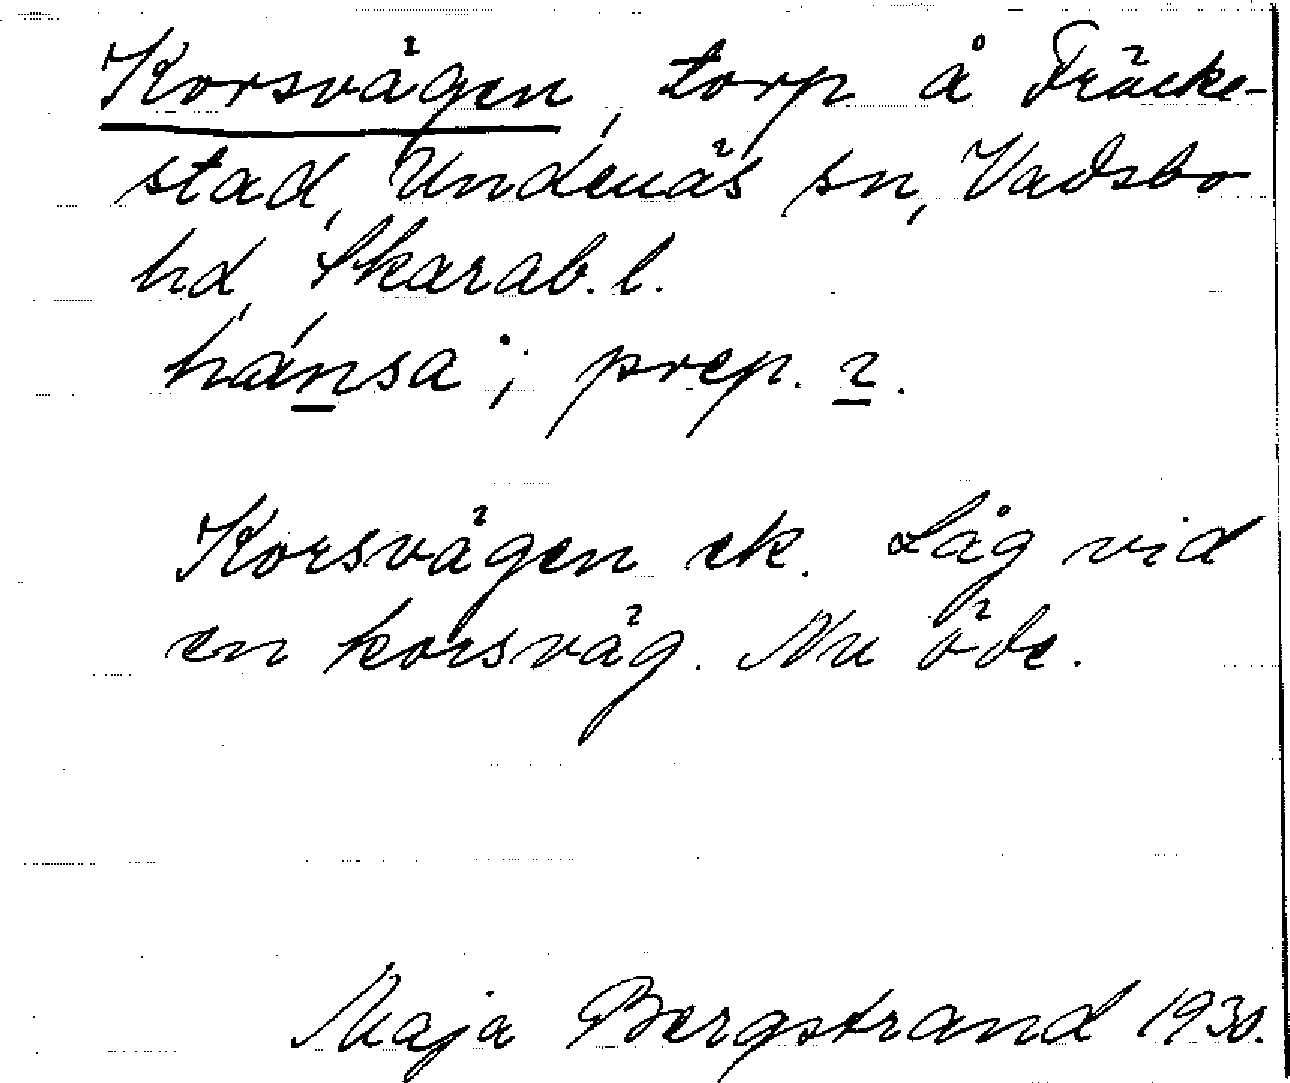 Korsvägen, torp å Fräcke-
stad, Undenäs sn, Vadsbo
hd, Skarab. l.
hánsa; prep. 2.
Korsvägen ek. Låg vid
en korsväg. Nu öde.
Maja Bergstrand 1930.